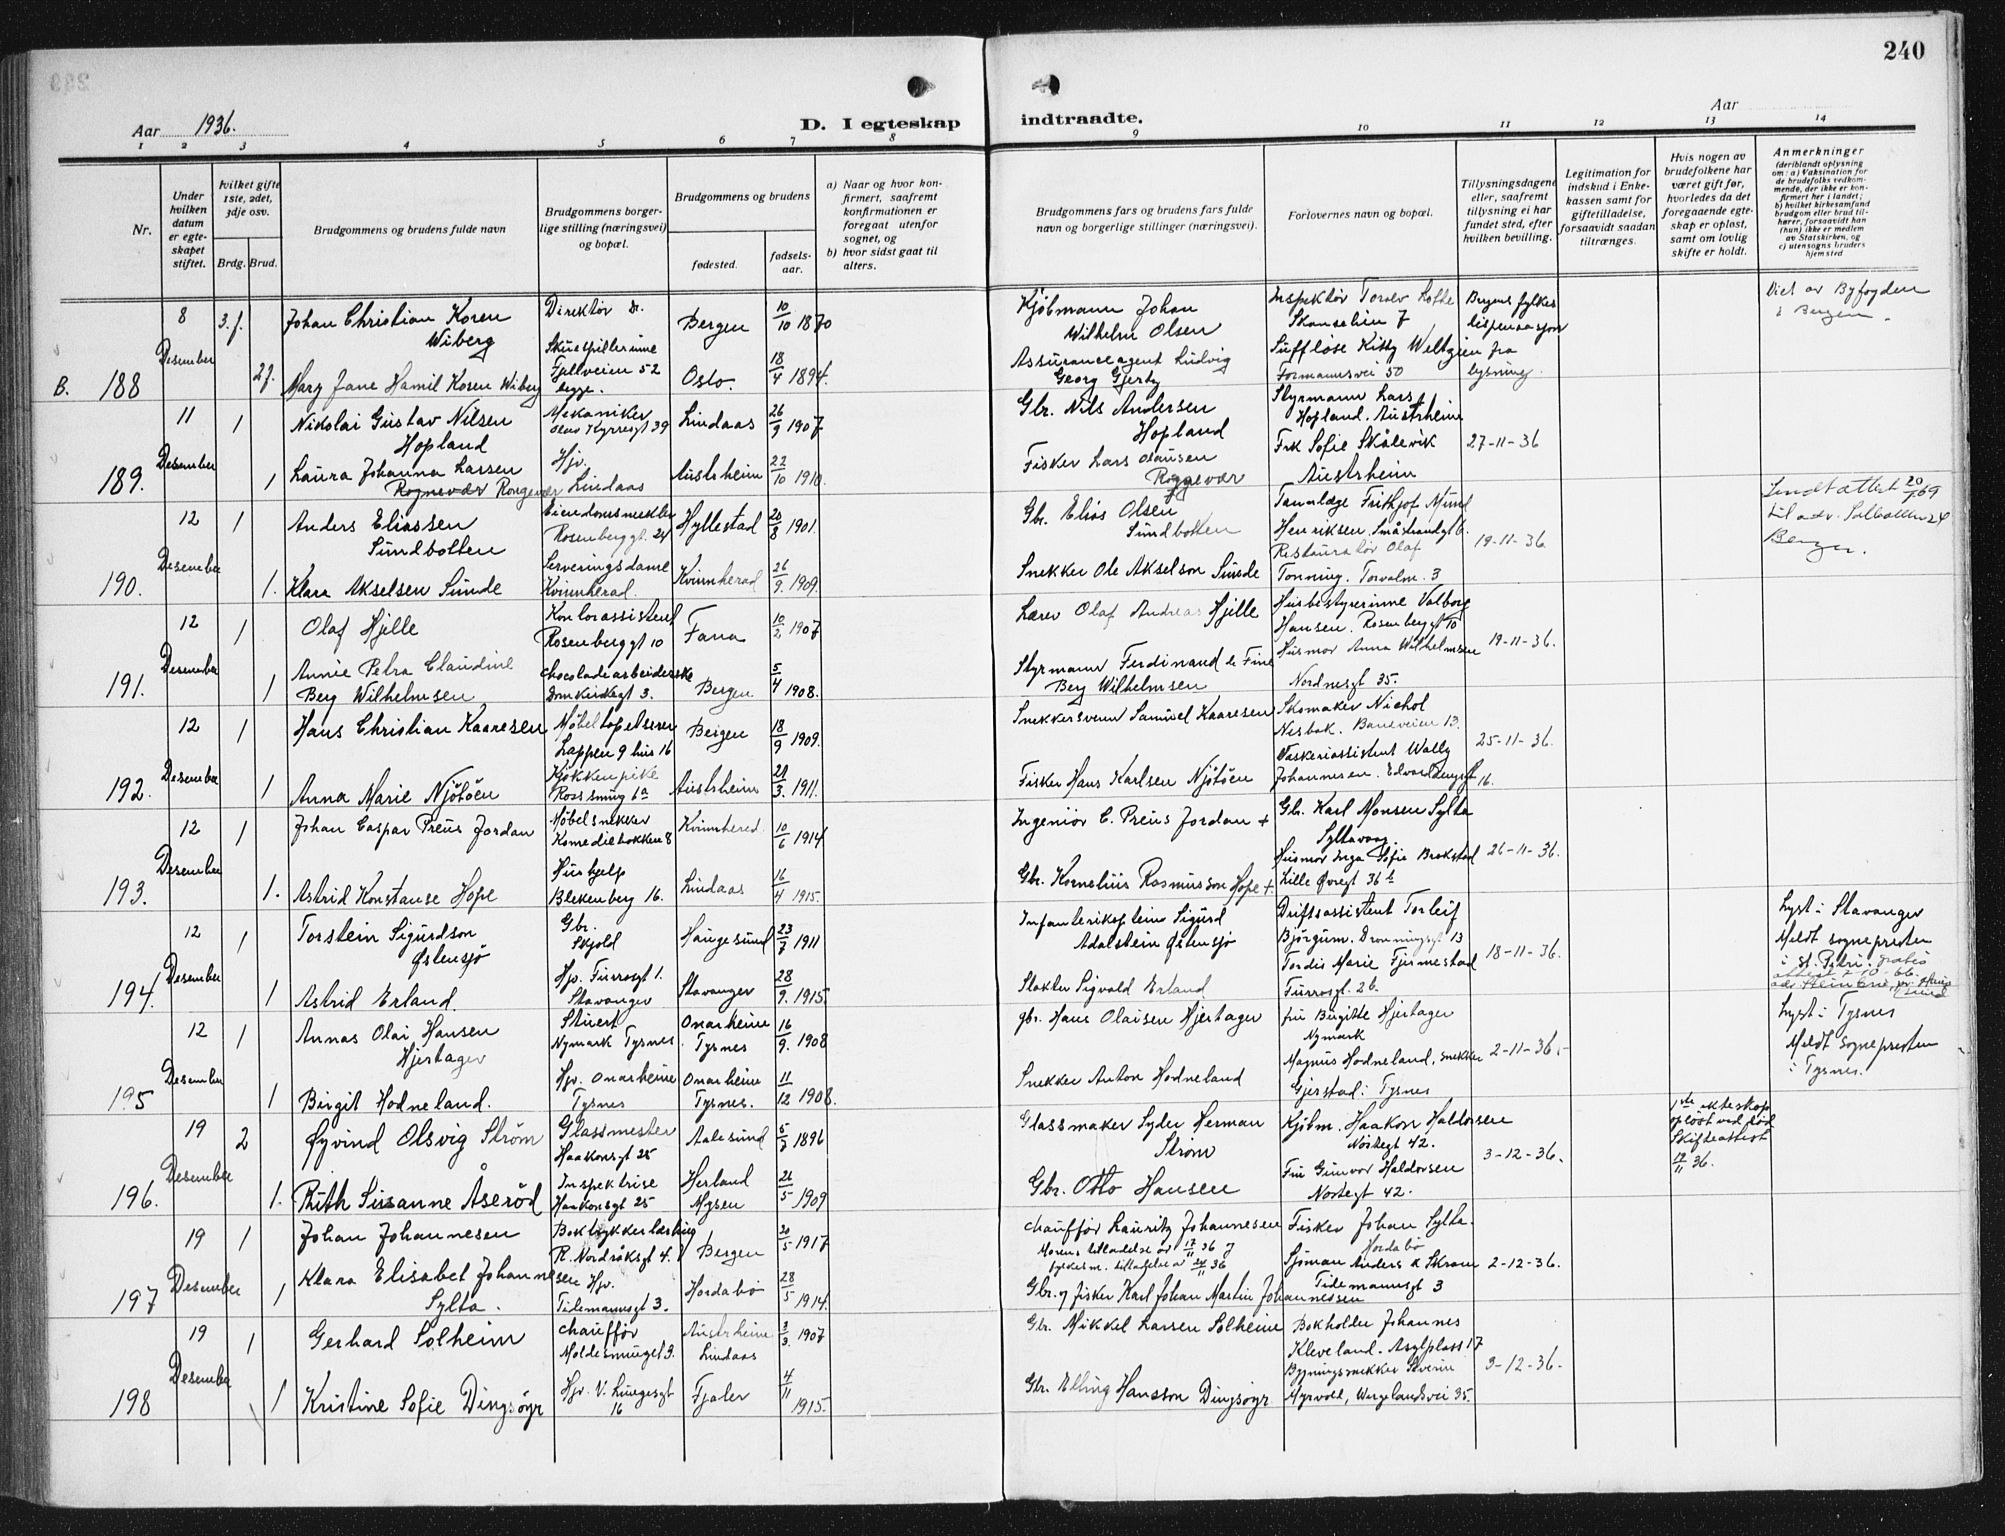 240
Aar 1936.
D. I egteskap
indtraadte.
Aar
1 2 3 4 5 6 7 8
9 10 11 12 13 14
Nr.
Under hvilken datum er egteskapet stiftet.
Hvilket gifte 1ste, 2det, 3dje osv.
Brdg. Brud.
Brudgommens og brudens fulde navn
Brudgommens borgerlige stilling (næringsvei) og bopæl.
Brudgommens og brudens
fødested. fødselsaar.
a) Naar og hvor konfirmert, saafremt konfirmationen er foregaat utenfor sognet, og
b) hvor sidst gaat til alters.
Brudgommens fars og brudens fars fulde navn og borgerlige stillinger (næringsvei).
Forlovernes navn og bopæl.
Tillysningsdagene eller, saafremt tillysning ei har fundet sted, efter hvilken bevilling.
Legitimation for indskud i Enkekassen samt for giftetilladelse, forsaavidt saadan tiltrænges.
Hvis nogen av brudefolkene har været gift før, hvorledes da det foregaaende egteskap er opløst, samt om lovlig skifte er holdt.
Anmerkninger
(deriblandt oplysning om: a) Vaksination for de brudefolks vedkommende, der ikke er konfirmert her i landet; b) hvilket kirkesamfund brudgom eller brud tilhører, forsaavidt han (hun) ikke er medlem av Statskirken, og c) utensogns bruders hjemsted
8 3.f. Johan Christian Koren Direktør Bergen 10/10 1870 Kjøbmann Johan Inspektør Toralv Lofte Bergens fylkes Viet av Byfogden
Wiberg Wilhelm Olsen Skanselien 7 i Bergen.
Desember Skuespillerinne 18/4 Assuranceagent Ludvig Sufløse Kitty
B. 188 Mary Jane Hamil Koren Wiberg Fjellveien 52 Oslo. 1894. Georg Gjertz Formannsvei 50 lysning
11 1 Nikolai Gustav Nilsen Mekaniker Lindaas 26/9 1907 Gbr. Nils Andersen Styrmann Lars
Hopland Olav Kyrresgt 39 Hopland Hopland. Austrheim
Desember Laura Johanna Larsen Hjv. Austrheim 22/10 1910 Fisker Lars Olausen Frk Sofie Skålevik 27-11-36
189. 1 Rognevær Rongevær Lindaas Roggevær Austrheim
12 1 Anders Eliassen Eiendomsmekler Hyllestad 20/8 1901. Gbr. Elias Olsen Tannlæge Frithjof Mund
Sundbotten Rosenberggt. 24 Sundbotten Henriksen. Småstrandgt 6. 19-11-36
Sendt attest 20/7 69
til adv.
Bergen.
Desember Serveringsdame 26/9 Restauratør Olaf
190. 1. Klara Akselsen Sunde Kvinnherad. Kvinnherad 1909. Snekker Ole Akselson Sunde Tonning. Torvalm. 3
12 1 Olaf Hjelle Kontorassistent Fana 10/2 1907 Lærer Olaf Andreas Hjille Husbestyrerinne Valborg
Rosenberggt 10 Hansen. Rosenberggt 10 19-11-36.
Desember Annie Petra Claudine Chocoladearbeiderske 5/4 Styrmann Ferdinand de Fine Husmor Anna Wilhelmsen
191. 1 Berg Wilhelmsen Domkirkegt 3. Bergen 1908. Berg Wilhelmsen Nordnesgt 35.
12 1 Hans Christian Kaaresen Møbeltapetserer Bergen 18/9 1909. Snekkersvenn Samuel Kaaresen Skomaker Nichol
Lappen 9 hus 16 Nesbak. Baneveien 13. 25-11-36.
Desember Kjøkkenpike Vaskeriassistent Wally
192. 1 Anna Marie Njøtøen Rossesmug 6a Austrheim 3. 1911. Fisker Hans Karlsen Njøtøen Johannesen. 16.
12 1 Johan Caspar Preus Jordan Møbelsnekker Kvinnherad 10/6 1914 Ingeniør C. Preus Jordan + Gbr. Karl Monsen Sylta
Komediebakken 8 Syltavaag. 26-11-36.
Desember Hushjelp 16/4 Husmor Inga Sofie Brekstad
193. 1. Astrid Konstanse Hope Blekenberg 16. Lindaas 1915. Gbr. Kornelius Rasmusson Hope + Lille Øvregt 36
12 1 Torstein Sigurdson Gbr. Haugesund 23/7 1911 Sigurd Driftsassistent Torleif Lyst i Stavanger
Østensjø Skjold Adalstein Østensjø Bjørgum. Dronningsgt 13 18-11-36. Meldt sogneprsten
Desember Hjv. Furrasgt 1. 28/9. Tordis Marie Fjermestad i St. Petri.
194. 1 Astrid Erland. Stavanger Stavanger 1915 Slakter Sigvald Erland Furrasgt. 26.
12 1 Annas Olai Hansen Stuert Onarheim 16/9. 1908 gbr. Hans Olaisen Hjertager fru Birgitte Hjertager Lyst i Tysnes
Hjertager Nymark Tysnes Tysnes Nymark 2-11-36. Meldt sogneprsten
Desember Hjv. Onarheim Onarheim 11/12 Magnus Hodneland, snekker i Tysnes.
195 1 Birgit Hodneland. Tysnes Tysnes. 1908. Snekker Anton Hodneland Gjerstad i Tysnes
19 2 Øyvind Olsvig Strøm Glassmester Aalesund 5/7 1896 Glassmaker Syder Herman Kjøbm. Haakon Haldorsen
Haakonsgt 25 Strøm Nostegt 42. 3-12-36.
1ste ekteskap
opløst ved død
Skifteattest
19/11 36.
Desember Inspektrise Herland 26/5 Gbr. Otto Hansen Fru Gunvor Haldorsen
196. 1. Ruth Susanne Åserød Haakonsgt 25 Mysen 1909 Nostegt 42.
19 1 Johan Johannesen Boktrykkerlærling Bergen 20/5 1917 Chauffør Lauritz Johannesen Fisker Johan Sylta.
R. Nordråksgt 4. Morens tilladelse av 17/11 36 Hordabø
Desember Klara Elisabet Johannesen Hjv. Hordabø 28/5 fylkesm. tilladelse a 24/11 36 Sjømann Anders Skram 2-12-36.
197 1 Sylta. Tidemannsgt 3. 1914. Gbr. og fisker Karl Johan Martin Johannessen Tidemannsgt 3
19 1 Gerhard Solheim Chauffør Austrheim 3/3. 1907 Gbr. Mikkel Larsen Solheim Bokholder Johannes
Moldesmuget 3. Lindaas Kleveland. Asylplass 17
Desember Hjv. V. Lungesgt 4/11 Bygningsnekker Severin 3-12-36.
198 1 Kristine Sofie Dingsøyr 16 Fjaler 1915. Gbr. Elling Hansson Dingsøyr Myrvold, Wergelandsvei 35.